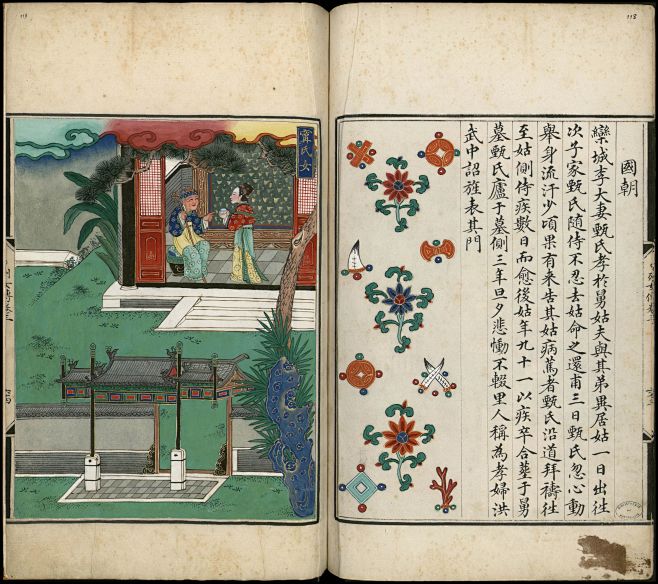 113
國朝
欒城李大妻甄氏孝於舅姑夫與其弟異居姑一日出往
次子家甄氏隨侍不忍去姑命之還甫三日甄氏忽心動
舉身流汗少頃果有來告其姑病篤者甄氏沿道拜禱往
至姑側侍疾數日而愈後姑年九十一以疾卒合葬于舅
墓甄氏廬于墓側三年旦夕悲慟不輟里人稱為孝婦洪
武中詔旌表其門
甯氏女